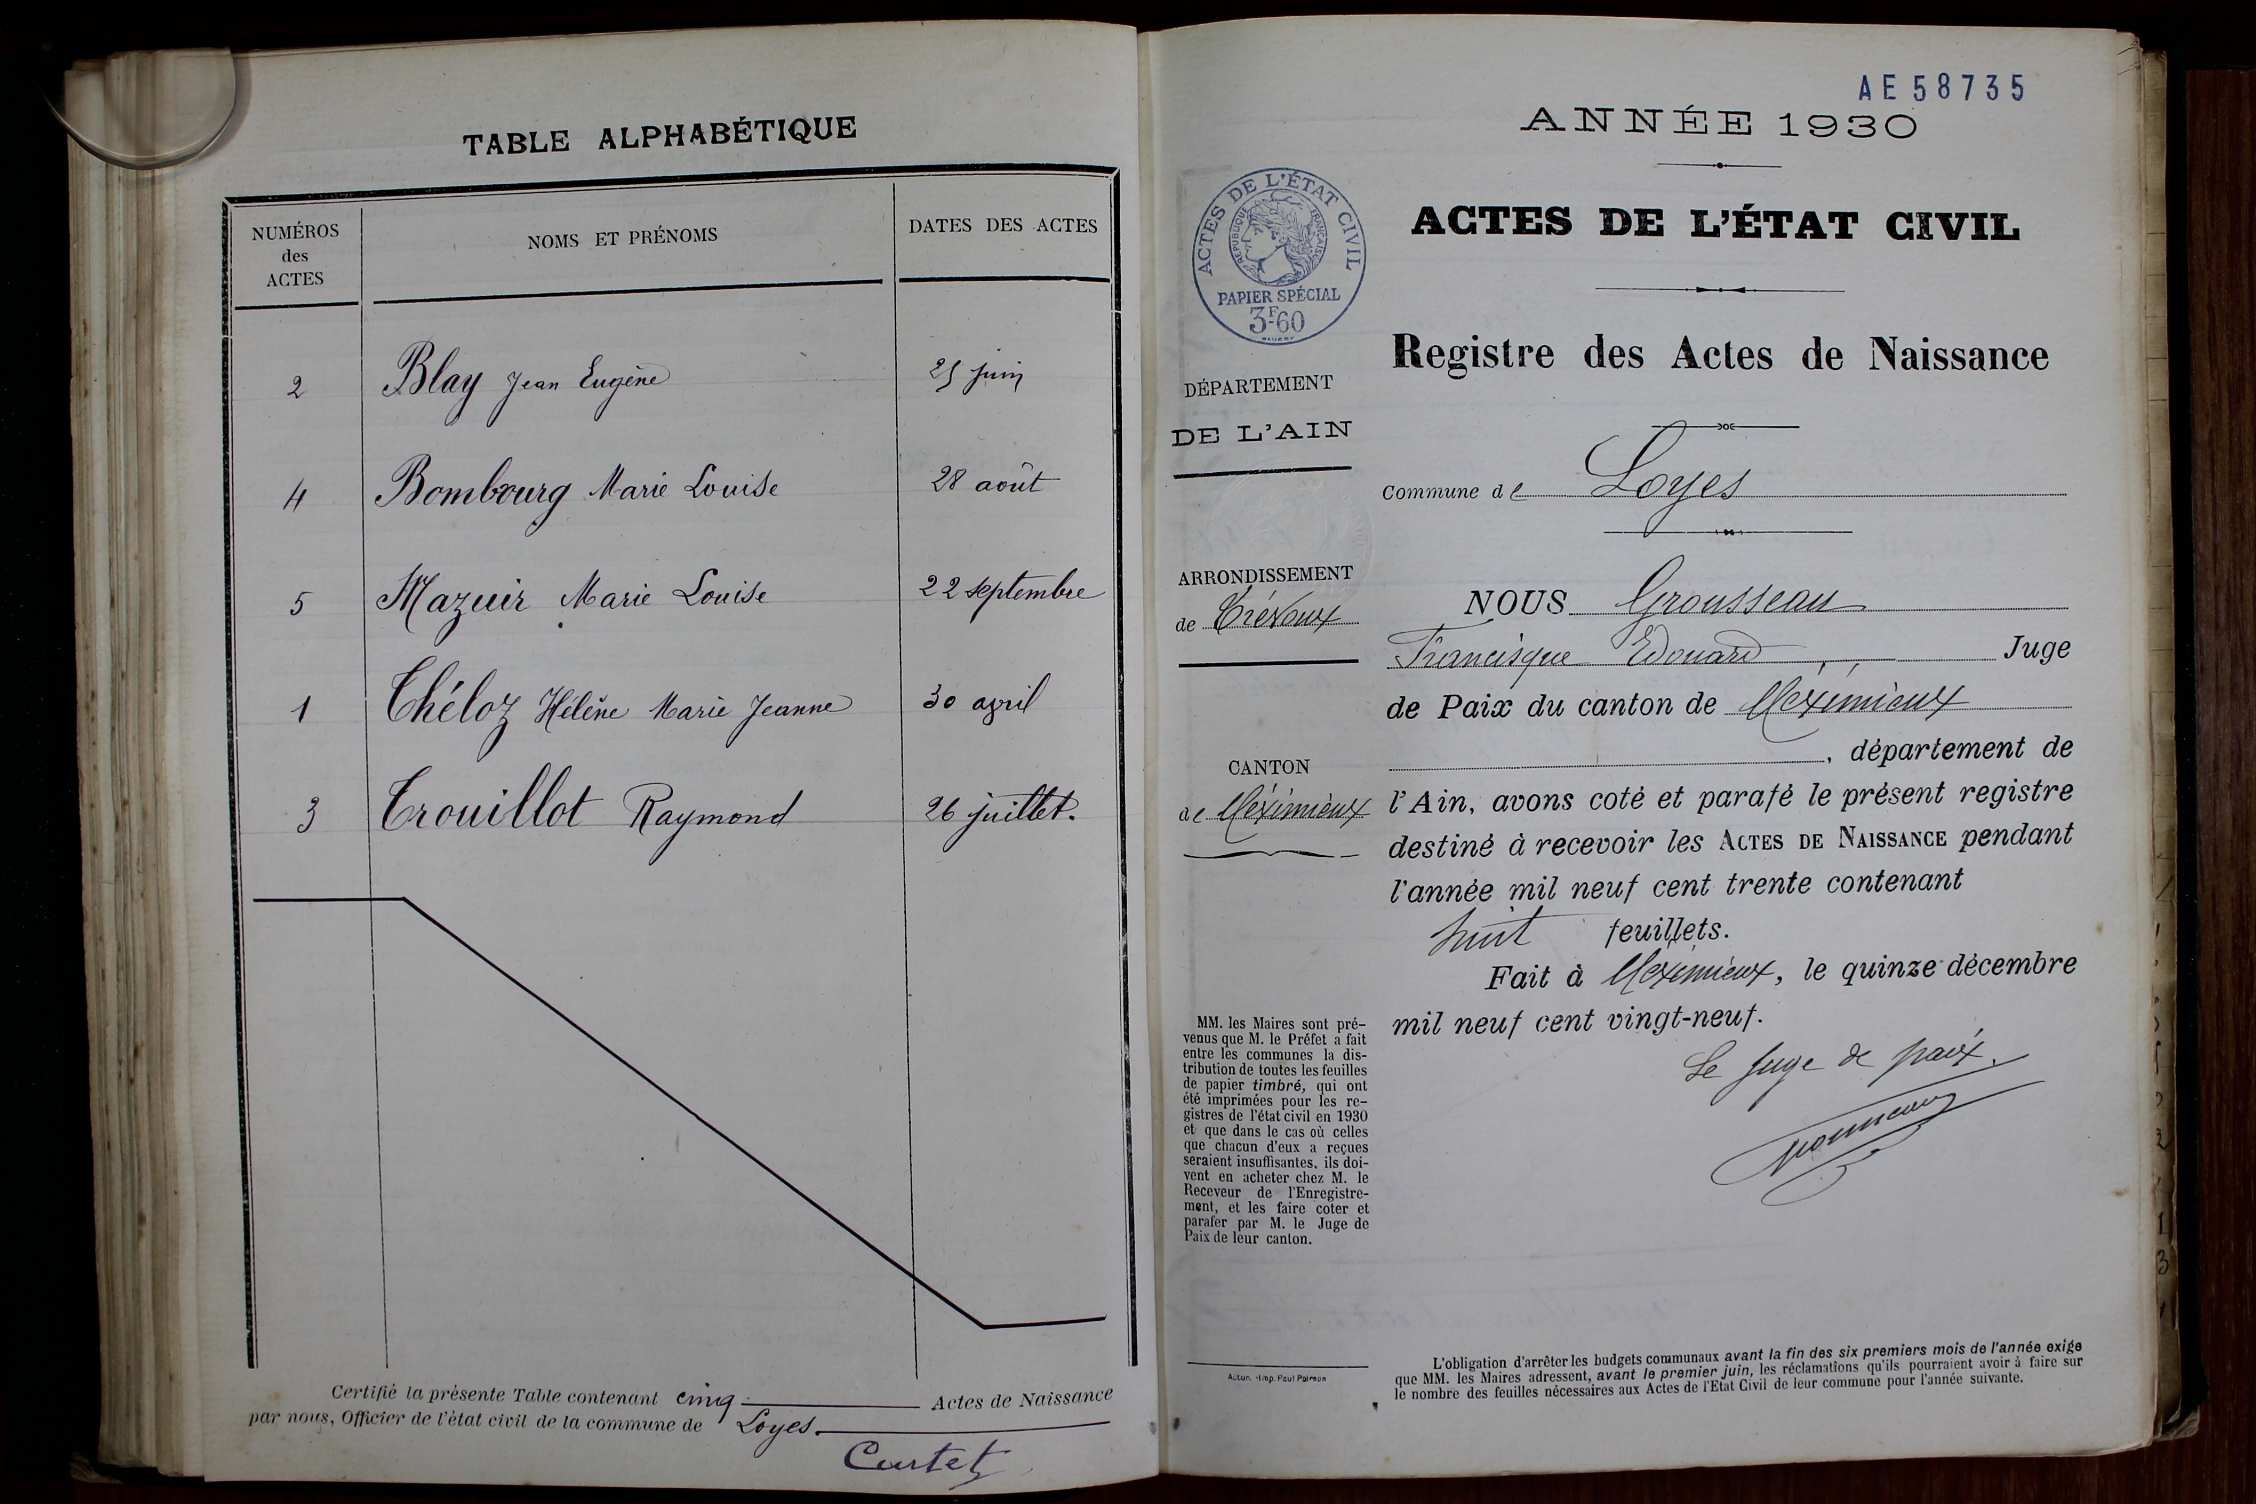 TABLE ALPHABÉTIQUE
NUMÉROS des ACTES
NOMS ET PRÉNOMS
DATES DES ACTES
2 Blay Jean Eugène 25 juin
4 Bombourg Marie Louise 28 août
5 Mazuir Marie Louise 22 septembre
1 Théloz Hélène Marie Jeanne 30 avril
3 Trouillot Raymond 26 juillet.
Certifié la présente Table contenant cinq Actes de Naissance
par nous, Officier de l'état civil de la commune de Loyes.
Curtet
AE58735
ANNÉE 1930
ACTES DE L'ÉTAT CIVIL
RÉPUBLIQUE FRANÇAISE
PAPIER SPÉCIAL
3F60
ACTES DE L'ÉTAT CIVIL
Registre des Actes de Naissance
DÉPARTEMENT
DE L'AIN
Commune de Loyes
ARRONDISSEMENT
de Trévoux
CANTON
de Méximieux
NOUS Grousseau
Francisque Edouard, Juge
de Paix du canton de Méximieux
, département de
l'Ain, avons coté et parafé le présent registre
destiné à recevoir les ACTES DE NAISSANCE pendant
l'année mil neuf cent trente contenant
huit feuillets.
Fait à Méximieux, le quinze décembre
mil neuf cent vingt-neuf.
Le Juge de paix.
MM. les Maires sont pré-
venus que M. le Préfet a fait
entre les communes la dis-
tribution de toutes les feuilles
de papier timbré, qui ont
été imprimées pour les re-
gistres de l'état civil en 1930
et que dans le cas où celles
que chacun d'eux a reçues
seraient insuffisantes, ils doi-
vent en acheter chez M. le
Receveur de l'Enregistre-
ment, et les faire coter et
parafer par M. le Juge de
Paix de leur canton.
L'obligation d'arrêter les budgets communaux avant la fin des six premiers mois de l'année exige
que MM. les Maires adressent, avant le premier juin, les réclamations qu'ils pourraient avoir à faire sur
le nombre des feuilles nécessaires aux Actes de l'Etat Civil de leur commune pour l'année suivante.